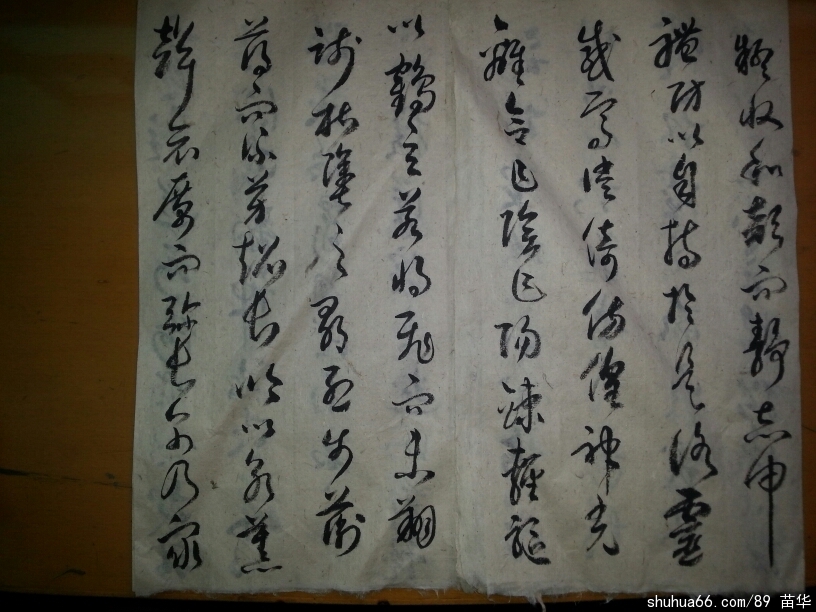 疑收和顏而靜志申
禮防以自持於是洛靈
感焉徙倚傍偟神光
離合乍陰乍陽竦輕軀
以鶴立若將飛而未翔
踐椒塗之郁烈步蘅
薄而流芳超長吟以永慕
聲哀厲而彌長爾乃眾
shuhua66.com/89 苗华